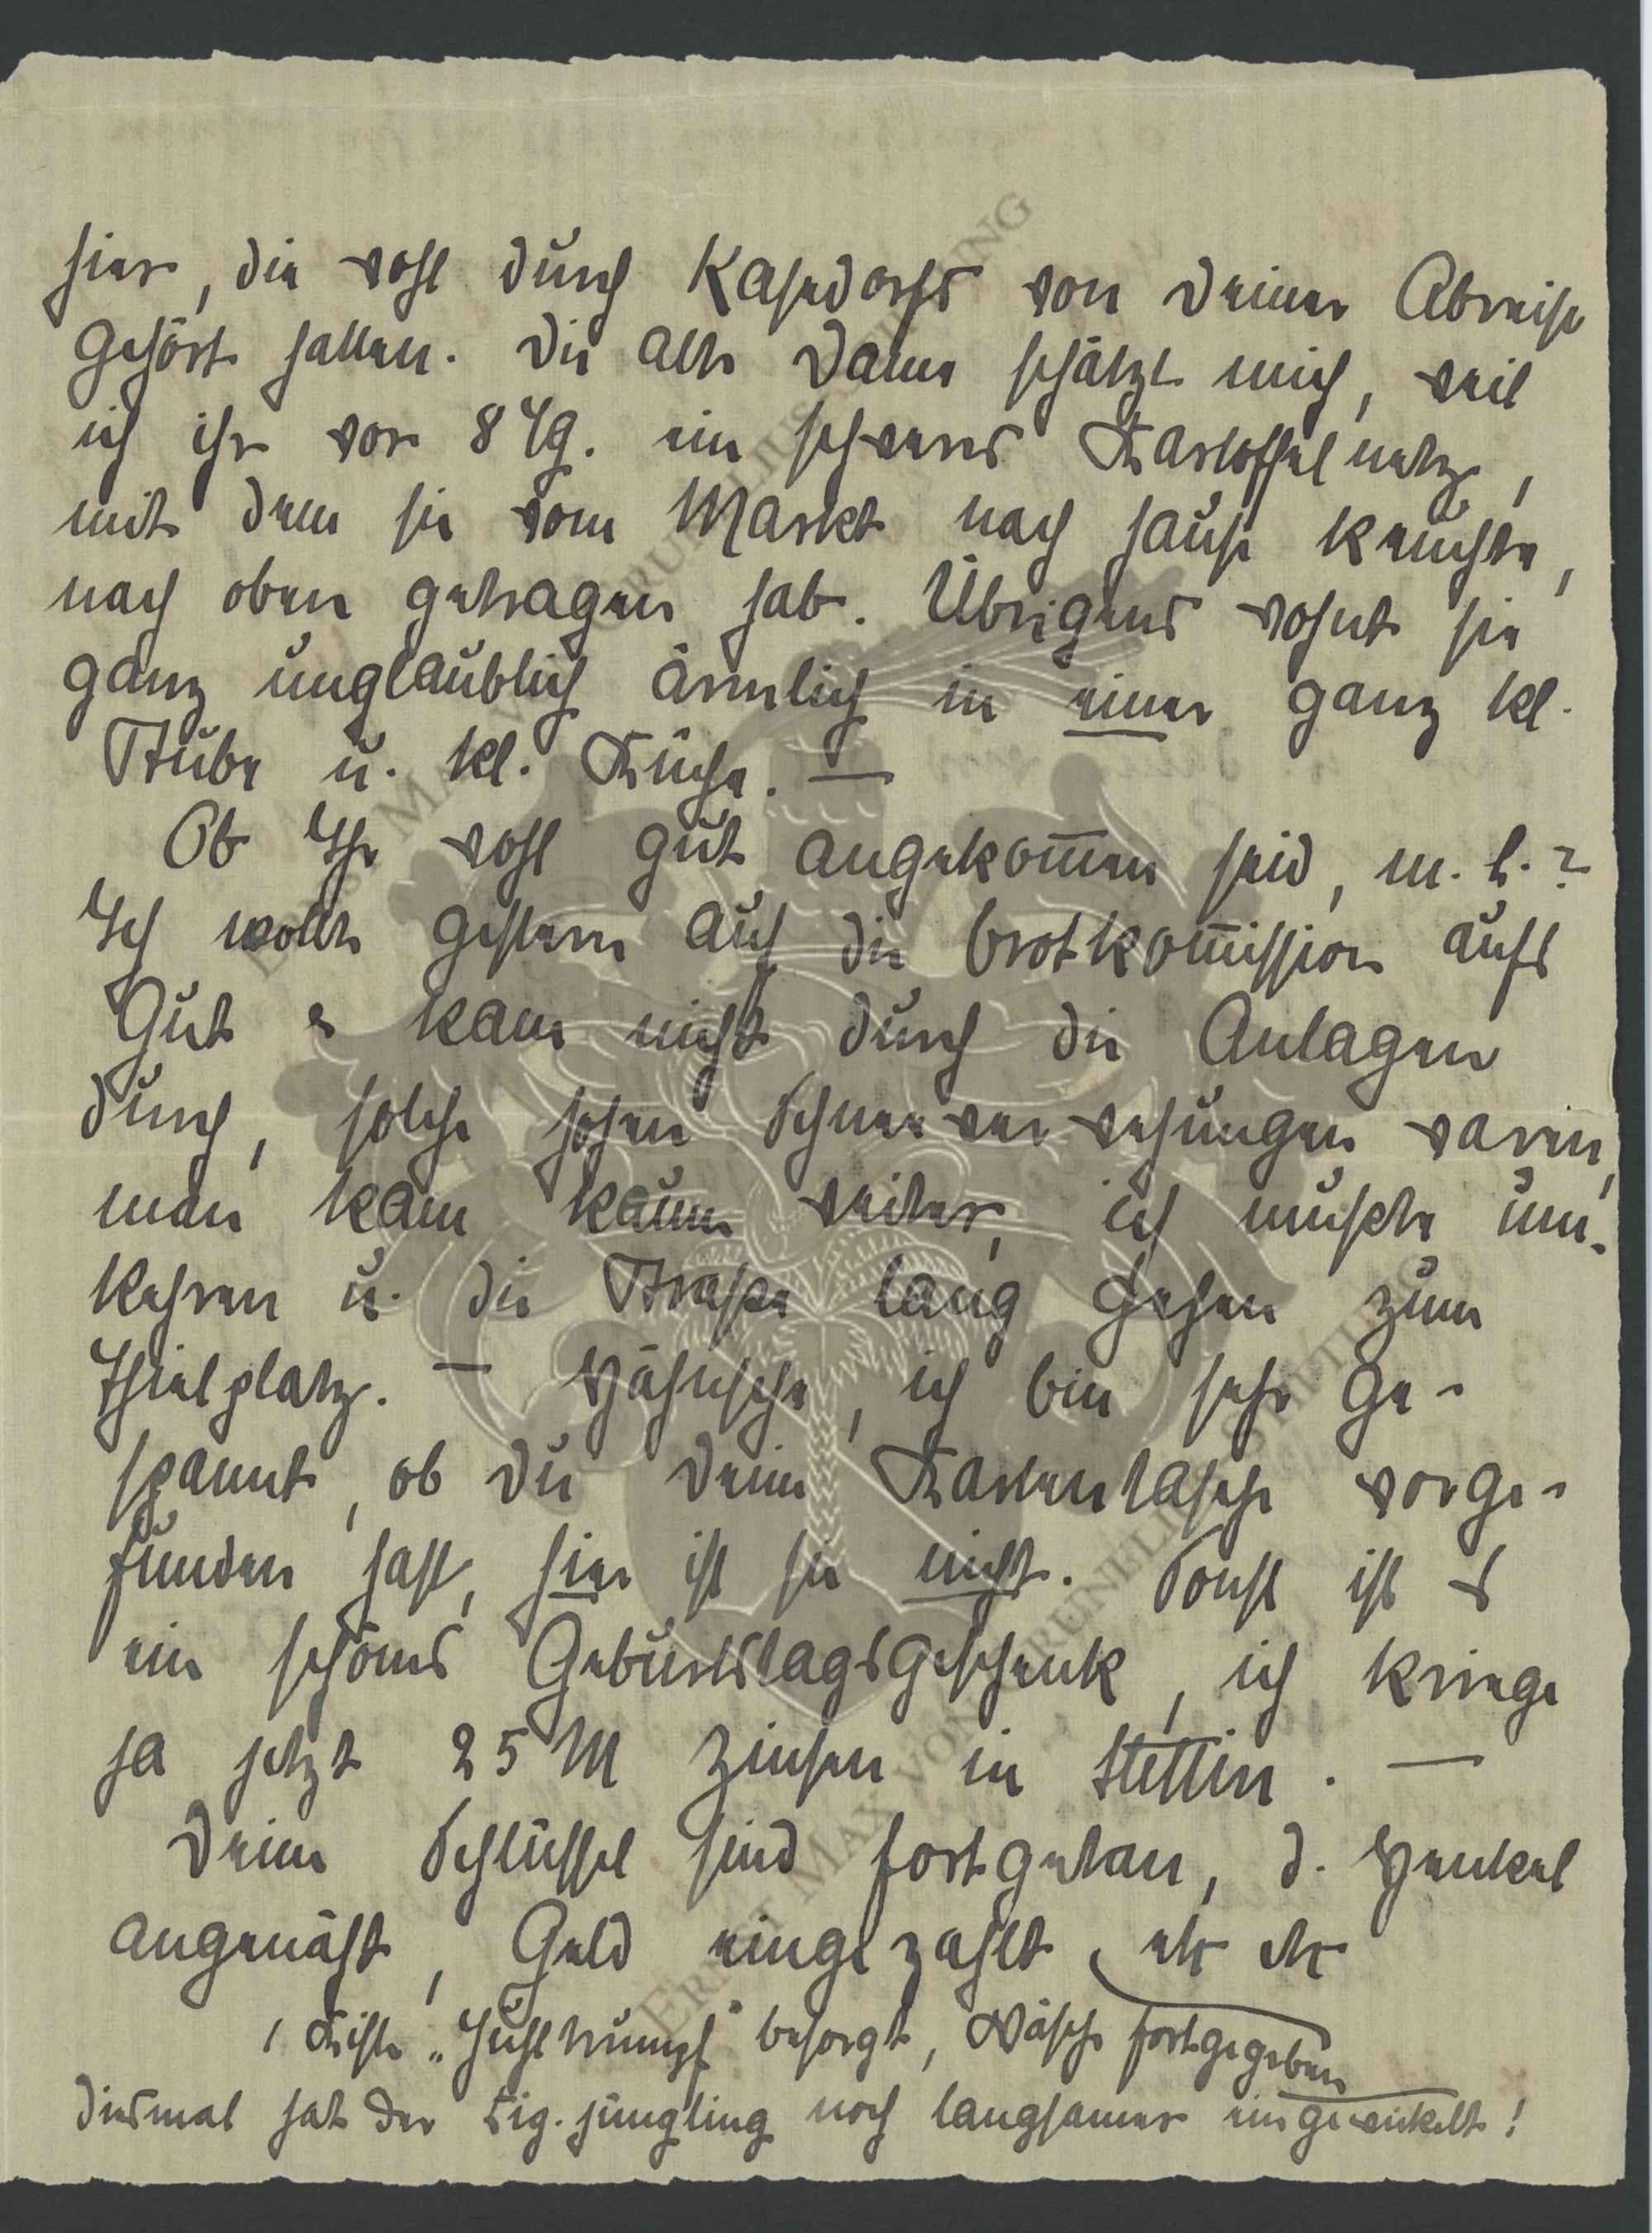 hier, die wohl durch Kahsdorfs von Deiner Abreise
gehört hatten. Die alte Dame schätzt mich, weil
ich ihr vor 8 Tg. ein schweres Kartoffelnetz,
mit dem sie vom Markt nach Hause keuchte,
nach oben getragen hab. Übrigens wohnt sie
ganz unglaublich ärmlich in einer ganz kl.
Stube u. kl. Küche. —
Ob Ihr wohl gut angekommen seid, m. L.?
Ich wollte gestern auf die Brotkommission aufs
Gut & kam nicht durch die Anlagen
durch, solche hohen Schneeverwehungen waren,
man kam kaum weiter, ich mußte um-
kehren u. die Straße lang gehen zum
Thielplatz. — Hähnsche, ich bin sehr ge-
spannt, ob Du Deine Kartentasche vorge-
funden hast, hier ist sie nicht. Sonst ist es
ein schönes Geburtstagsgeschenk, ich kriege
ja jetzt 25 M Zinsen in Stettin. —
Deine Schlüssel sind fortgetan, d. Henkel
angenäht, Geld eingezahlt, etc etc
1 Kiste „Juhltrumpf" besorgt, Wäsche fortgegeben
diesmal hat der Zig. jüngling noch langsamer eingewickelt!
ERNST MAX VON GRUNELIUS STIFTUNG
ERNST MAX VON GRUNELIUS STIFTUNG